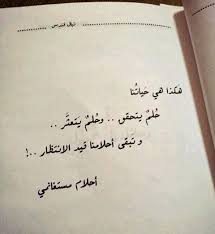 هكذا هي حياتُنا
حُلمٌ يتحقق .. وحُلمٌ يتعثَّر ..
و تبقى أحلامنا قيد الانتظار ..!
أحلام مستغانمي